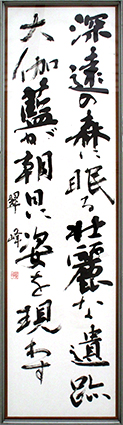 深遠の森に眠る壮麗な遺跡
大伽藍が朝日に姿を現わす
翠峰